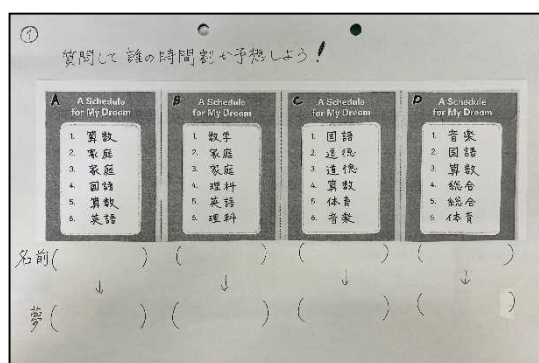 ①
質問して誰の時間割か予想しよう!
A
A Schedule
for My Dream
1. 算数
2. 家庭
3. 家庭
4. 国語
5. 算数
6. 英語
B
A Schedule
for My Dream
1. 数学
2. 家庭
3. 家庭
4. 理科
5. 英語
6. 理科
C
A Schedule
for My Dream
1. 国語
2. 道徳
3. 道徳
4. 算数
5. 体育
6. 音楽
D
A Schedule
for My Dream
1. 音楽
2. 国語
3. 算数
4. 総合
5. 総合
6. 体育
名前( ) ( ) ( ) ( )
↓ ↓ ↓ ↓
夢( ) ( ) ( ) ( )